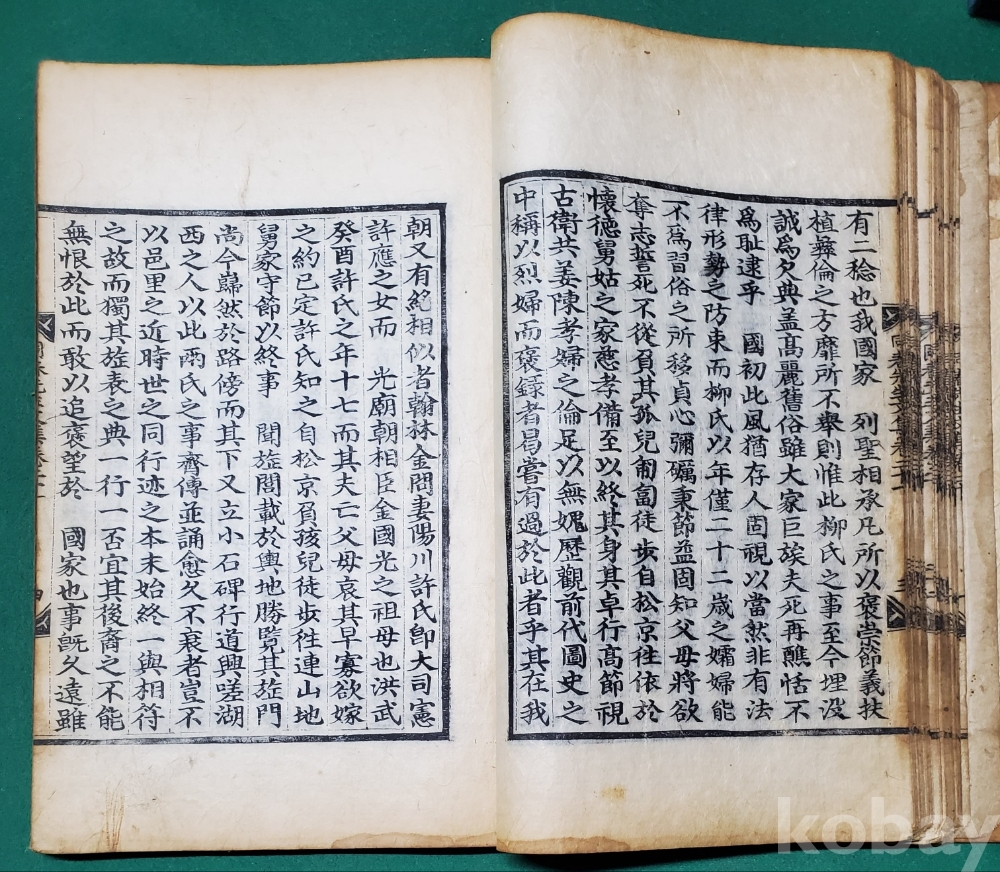 有二稔也我國家 列聖相承凡所以褒崇節義扶
植彝倫之方靡所不擧則惟此柳氏之事至今埋没
誠爲欠典盖高麗舊俗雖大家巨族夫死再醮恬不
爲耻逮乎 國初此風猶存人固視以當然非有法
律形勢之防束而柳氏以年僅二十二歲之孀婦能
不爲習俗之所移貞心彌礪秉節益固知父母將欲
奪志誓死不從負其孤兒匍匐徒步自松京徃依於
懷德舅姑之家慈孝備至以終其身其卓行高節視
古衛共姜陳孝婦之倫足以無媿歷觀前代圖史之
中稱以烈婦而褒録者曷嘗有過於此者乎其在我
朝又有絶相似者翰林金問妻陽川許氏卽大司憲
許應之女而 光廟朝相臣金國光之祖母也洪武
癸酉許氏之年十七而其夫亡父母哀其早寡欲嫁
之約已定許氏知之自松京負孩兒徒步徃連山地
舅家守節以終事 聞旋閭載於輿地勝覽其旋門
尚今巋然於路傍而其下又立小石碑行道興嗟湖
西之人以此兩氏之事齊傳並誦愈久不衰者豈不
以邑里之近時世之同行迹之本末始終一與相符
之故而獨其旋表之典一行一否宜其後裔之不能
無恨於此而敢以追褒望於 國家也事旣久遠雖
kobay